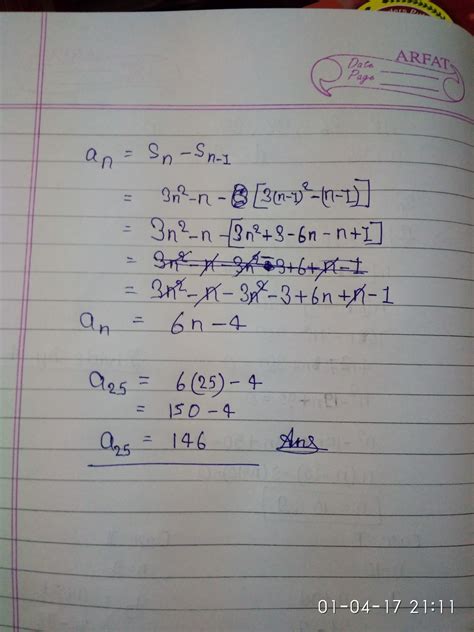 ARFAT
Date
Page
aₙ = Sₙ - Sₙ₋₁
= 3n² - n - [3(n-1)² - (n-1)]
= 3n² - n - [3n² + 3 - 6n - n + 1]
= 3n² - n - 3n² - 3 + 6n + n - 1
aₙ = 6n - 4
a₂₅ = 6(25) - 4
= 150 - 4
a₂₅ = 146 Ans
01-04-17 21:11